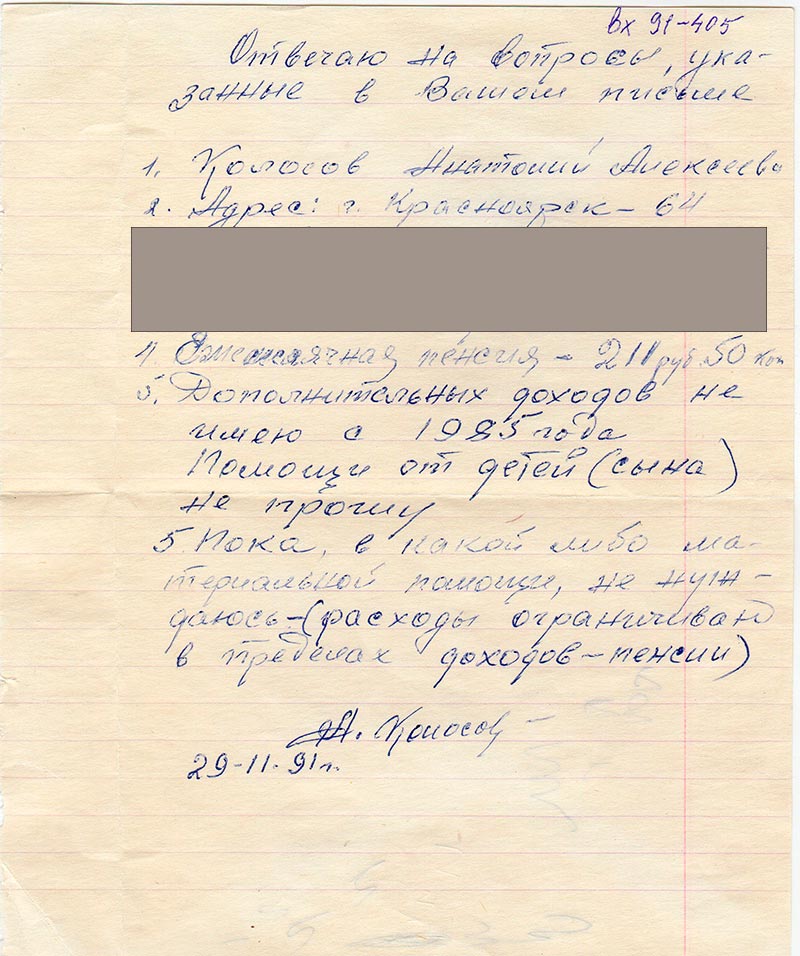 вх 91-405
Отвечаю на вопросы, ука-
занные в Вашем письме
1. Колосов Анатолий Алексееви
2. Адрес: г. Красноярск-64
4. Ежемесячная пенсия - 211 руб. 50 коп
5. Дополнительных доходов не
имею с 1985 года
Помощи от детей (сына)
не прошу
5. Пока, в какой либо ма-
териальной помощи, не нуж-
даюсь-(расходы ограничиваю
в пределах доходов-пенсии)
А. Колосов
29-11-91г.